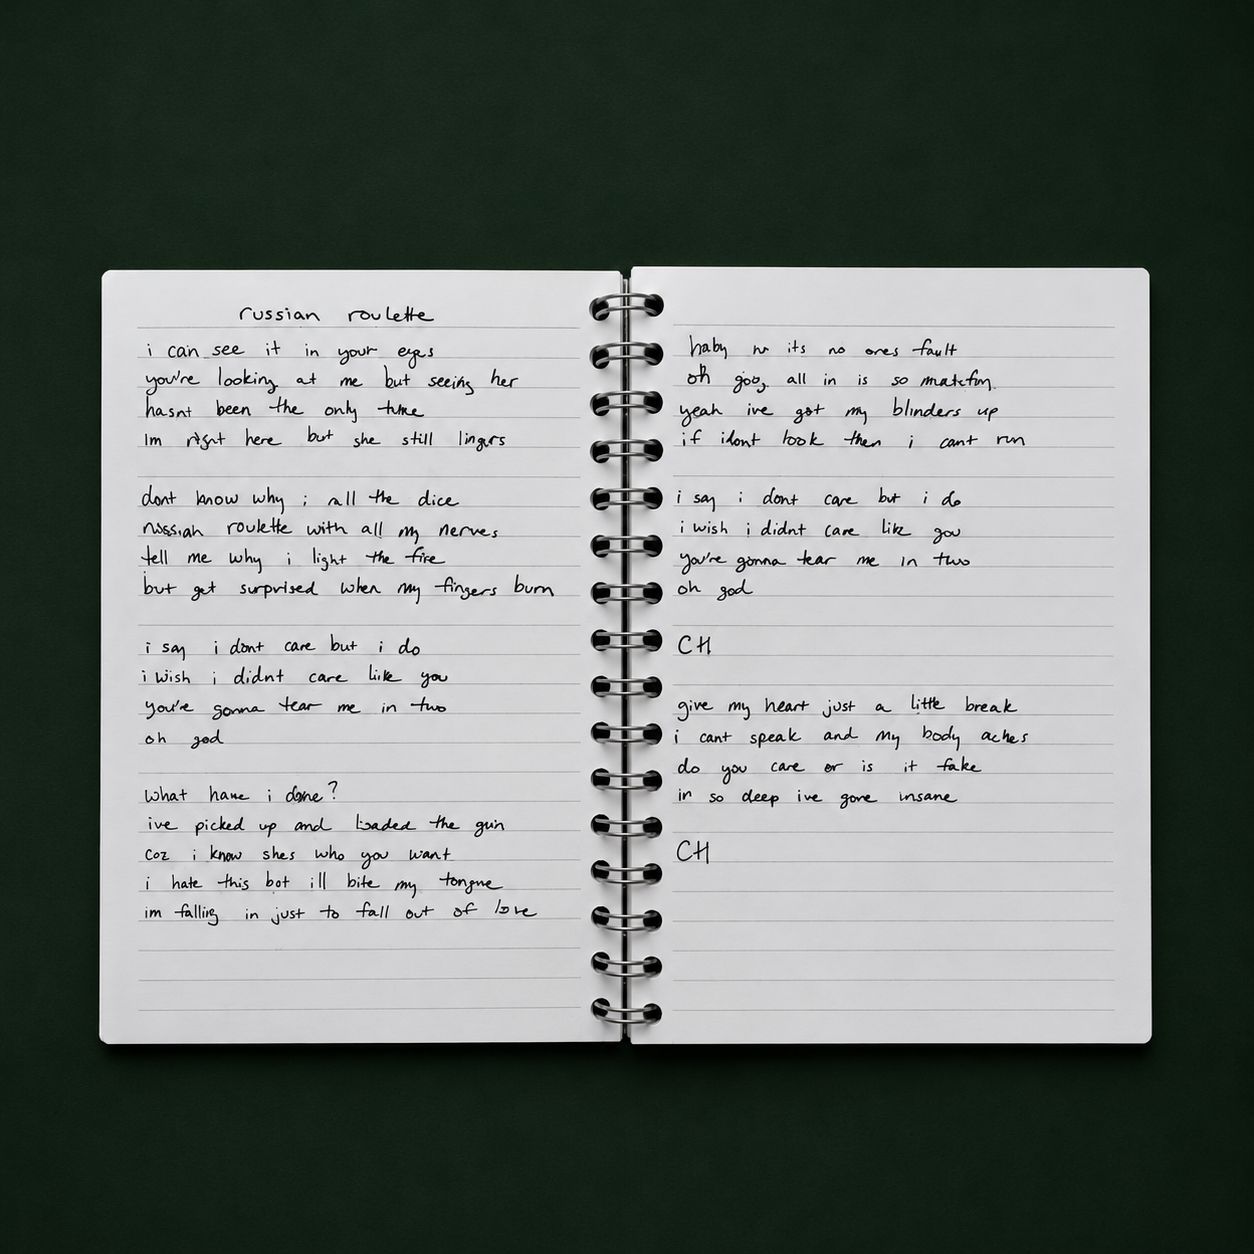 russian roulette
i can see it in your eyes
you're looking at me but seeing her
hasnt been the only time
Im right here but she still lingers
dont know why i roll the dice
russian roulette with all my nerves
tell me why i light the fire
but get surprised when my fingers burn
i say i dont care but i do
i wish i didnt care like you
you're gonna tear me in two
oh god
what have i done?
ive picked up and loaded the gun
coz i know shes who you want
i hate this but ill bite my tongue
im falling in just to fall out of love
baby no its no ones fault
oh all in is so
yeah ive got my blinders up
if i dont look then i cant run
i say i dont care but i do
i wish i didnt care like you
you're gonna tear me in two
oh god
CH
give my heart just a little break
i cant speak and my body aches
do you care or is it fake
in so deep ive gone insane
CH